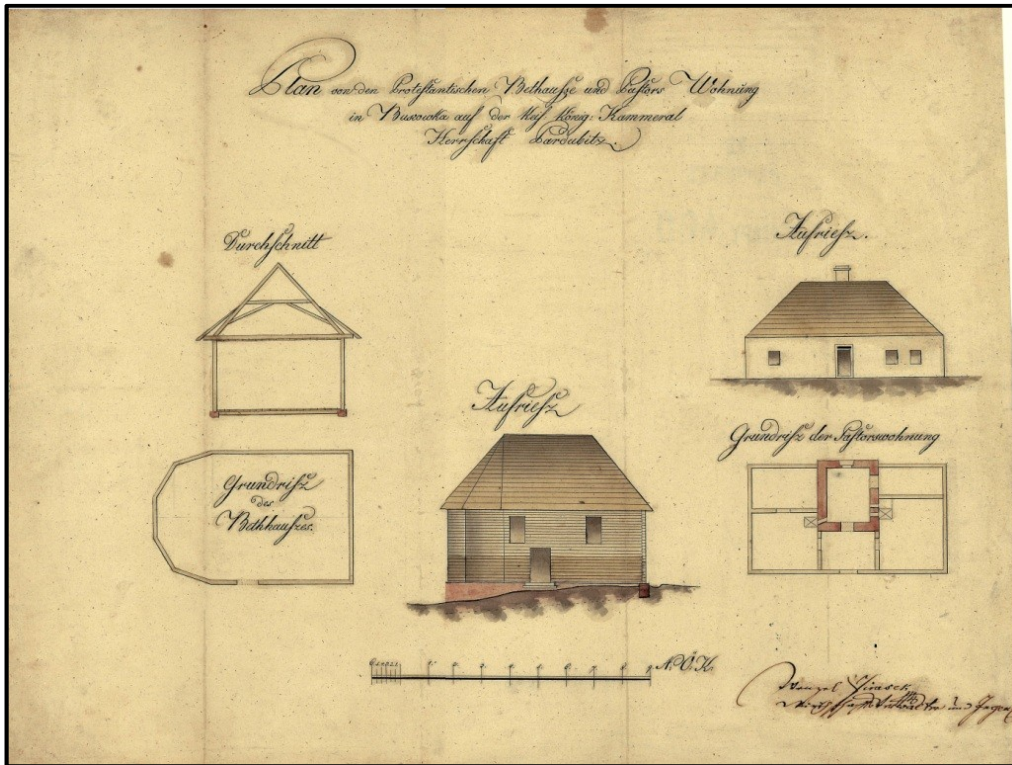 Plan von den Protestantischen Bethausze und Pastors Wohnung
in Bukowka auf der Kais. König. Kammeral
Herrschaft Pardubitz.
Durchschnitt
Aufriesz.
Aufriesz
Grundrisz der Pastorswohnung
Grundrisz
des
Bethhauszes.
N. Ö. K.
Wenzel Jirasek